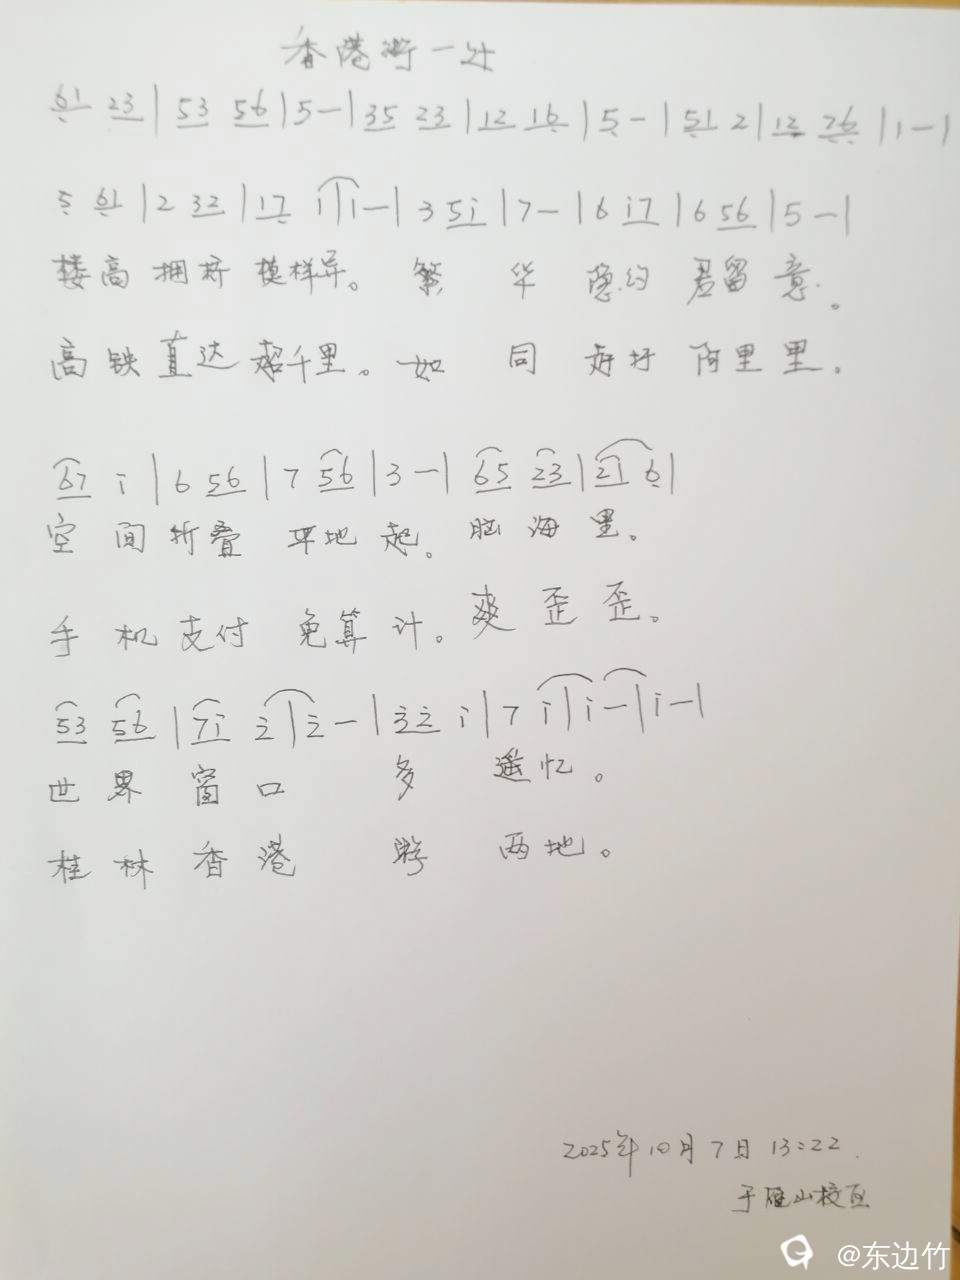 香港街一处
61 23 | 53 56 | 5 - | 35 23 | 12 16 | 5 - | 51 2 | 12 76 | 1 - |
5 61 | 2 32 | 17 i | i - | 3 5i | 7 - | 6 i7 | 6 56 | 5 - |
楼高拥挤模样异。繁华隐约君留意。
高铁直达超千里。如同好好阿里里。
67 i | 6 56 | 7 56 | 3 - | 65 23 | 21 6 |
空间折叠平地起。脑海里。
手机支付免算计。爽歪歪。
53 56 | 7i 2 | 2 - | 32 i | 7 i | i - | i - |
世界窗口多遥忆。
桂林香港游两地。
2025年10月7日 13:22.
于雁山校区
@东边竹